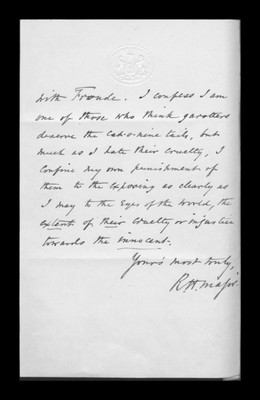 with Froude. I confess I am
one of those who think garotters
deserve the cat-o-nine tails, but
much as I hate their cruelty, I
confine my own punishment of
them to the exposing as clearly as
I may to the Eyes of the World, the
extent of their cruelty or injustice
towards the innocent.
Yours most truly,
R. H. Major